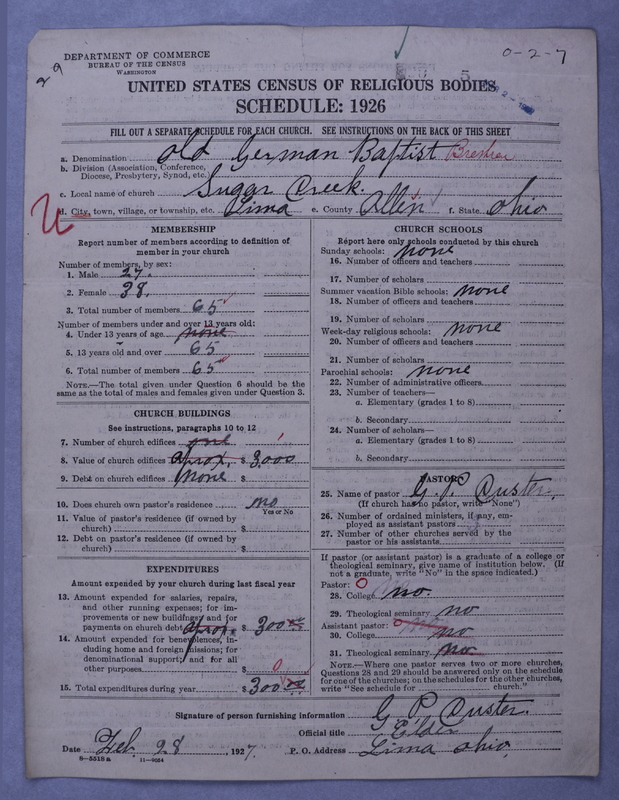 DEPARTMENT OF COMMERCE
BUREAU OF THE CENSUS
WASHINGTON
29
0-2-7
UNITED STATES CENSUS OF RELIGIOUS BODIES
SCHEDULE: 1926
FILL OUT A SEPARATE SCHEDULE FOR EACH CHURCH. SEE INSTRUCTIONS ON THE BACK OF THIS SHEET
a. Denomination Old German Baptist
b. Division (Association, Conference, Diocese, Presbytery, Synod, etc.)
c. Local name of church Sugar Creek.
d. City, town, village, or township, etc. Lima e. County Allen f. State Ohio
U
MEMBERSHIP
Report number of members according to definition of
member in your church
Number of members, by sex:
1. Male 27.
2. Female 38.
3. Total number of members 65
Number of members under and over 13 years old:
4. Under 13 years of age none
5. 13 years old and over 65
6. Total number of members 65
NOTE.—The total given under Question 6 should be the
same as the total of males and females given under Question 3.
CHURCH BUILDINGS
See instructions, paragraphs 10 to 12
7. Number of church edifices one 1
8. Value of church edifices aprox. $ 3000
9. Debt on church edifices none $
10. Does church own pastor's residence no
Yes or No
11. Value of pastor's residence (if owned by
church) $
12. Debt on pastor's residence (if owned by
church) $
EXPENDITURES
Amount expended by your church during last fiscal year
13. Amount expended for salaries, repairs,
and other running expenses; for im-
provements or new buildings; and for
payments on church debt aprox. $ 300 00
14. Amount expended for benevolences, in-
cluding home and foreign missions; for
denominational support; and for all
other purposes $ 0
15. Total expenditures during year $ 300 00
CHURCH SCHOOLS
Report here only schools conducted by this church
Sunday schools: none
16. Number of officers and teachers
17. Number of scholars
Summer vacation Bible schools: none
18. Number of officers and teachers
19. Number of scholars
Week-day religious schools: none
20. Number of officers and teachers
21. Number of scholars
Parochial schools: none
22. Number of administrative officers
23. Number of teachers—
a. Elementary (grades 1 to 8)
b. Secondary
24. Number of scholars—
a. Elementary (grades 1 to 8)
b. Secondary
PASTOR
25. Name of pastor G. P. Custer.
(If church has no pastor, write "None")
26. Number of ordained ministers, if any, em-
ployed as assistant pastors
27. Number of other churches served by the
pastor or his assistants
If pastor (or assistant pastor) is a graduate of a college or
theological seminary, give name of institution below. (If
not a graduate, write "No" in the space indicated.)
Pastor: 0
28. College no.
29. Theological seminary no
Assistant pastor: 0
30. College no
31. Theological seminary no.
NOTE.—Where one pastor serves two or more churches,
Questions 28 and 29 should be answered only on the schedule
for one of the churches; on the schedules for the other churches,
write "See schedule for church."
Signature of person furnishing information G P Custer.
Official title Elder
Date Feb. 28, 1927. P. O. Address Lima Ohio.
8-5518 a 11-9064